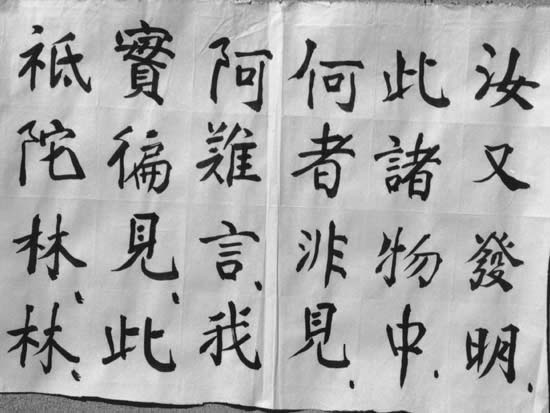 汝又發明、
此諸物中、
何者非見、
阿難言、我
實徧見、此
祇陀林、林、